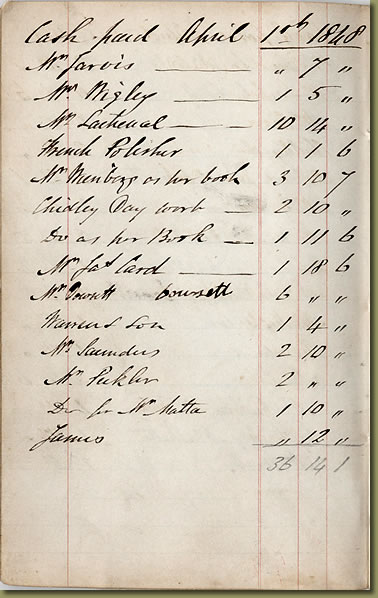 Cash paid April 1st 1848
Mr Jarvis — " 7 "
Mr Wigley — 1 5 "
Mr Lachenal — 10 14 "
French Polisher 1 1 6
Mr as per book 3 10 7
Chidley Day work — 2 10 "
Do as per Book — 1 11 6
Mr Jas Card — 1 18 6
Mr Dowsett 6 " "
Warrens son 1 4 "
Mr Saunders 2 10 "
Mr 2 " "
Do for Mr Matta 1 10 "
James " 12 "
36 14 1